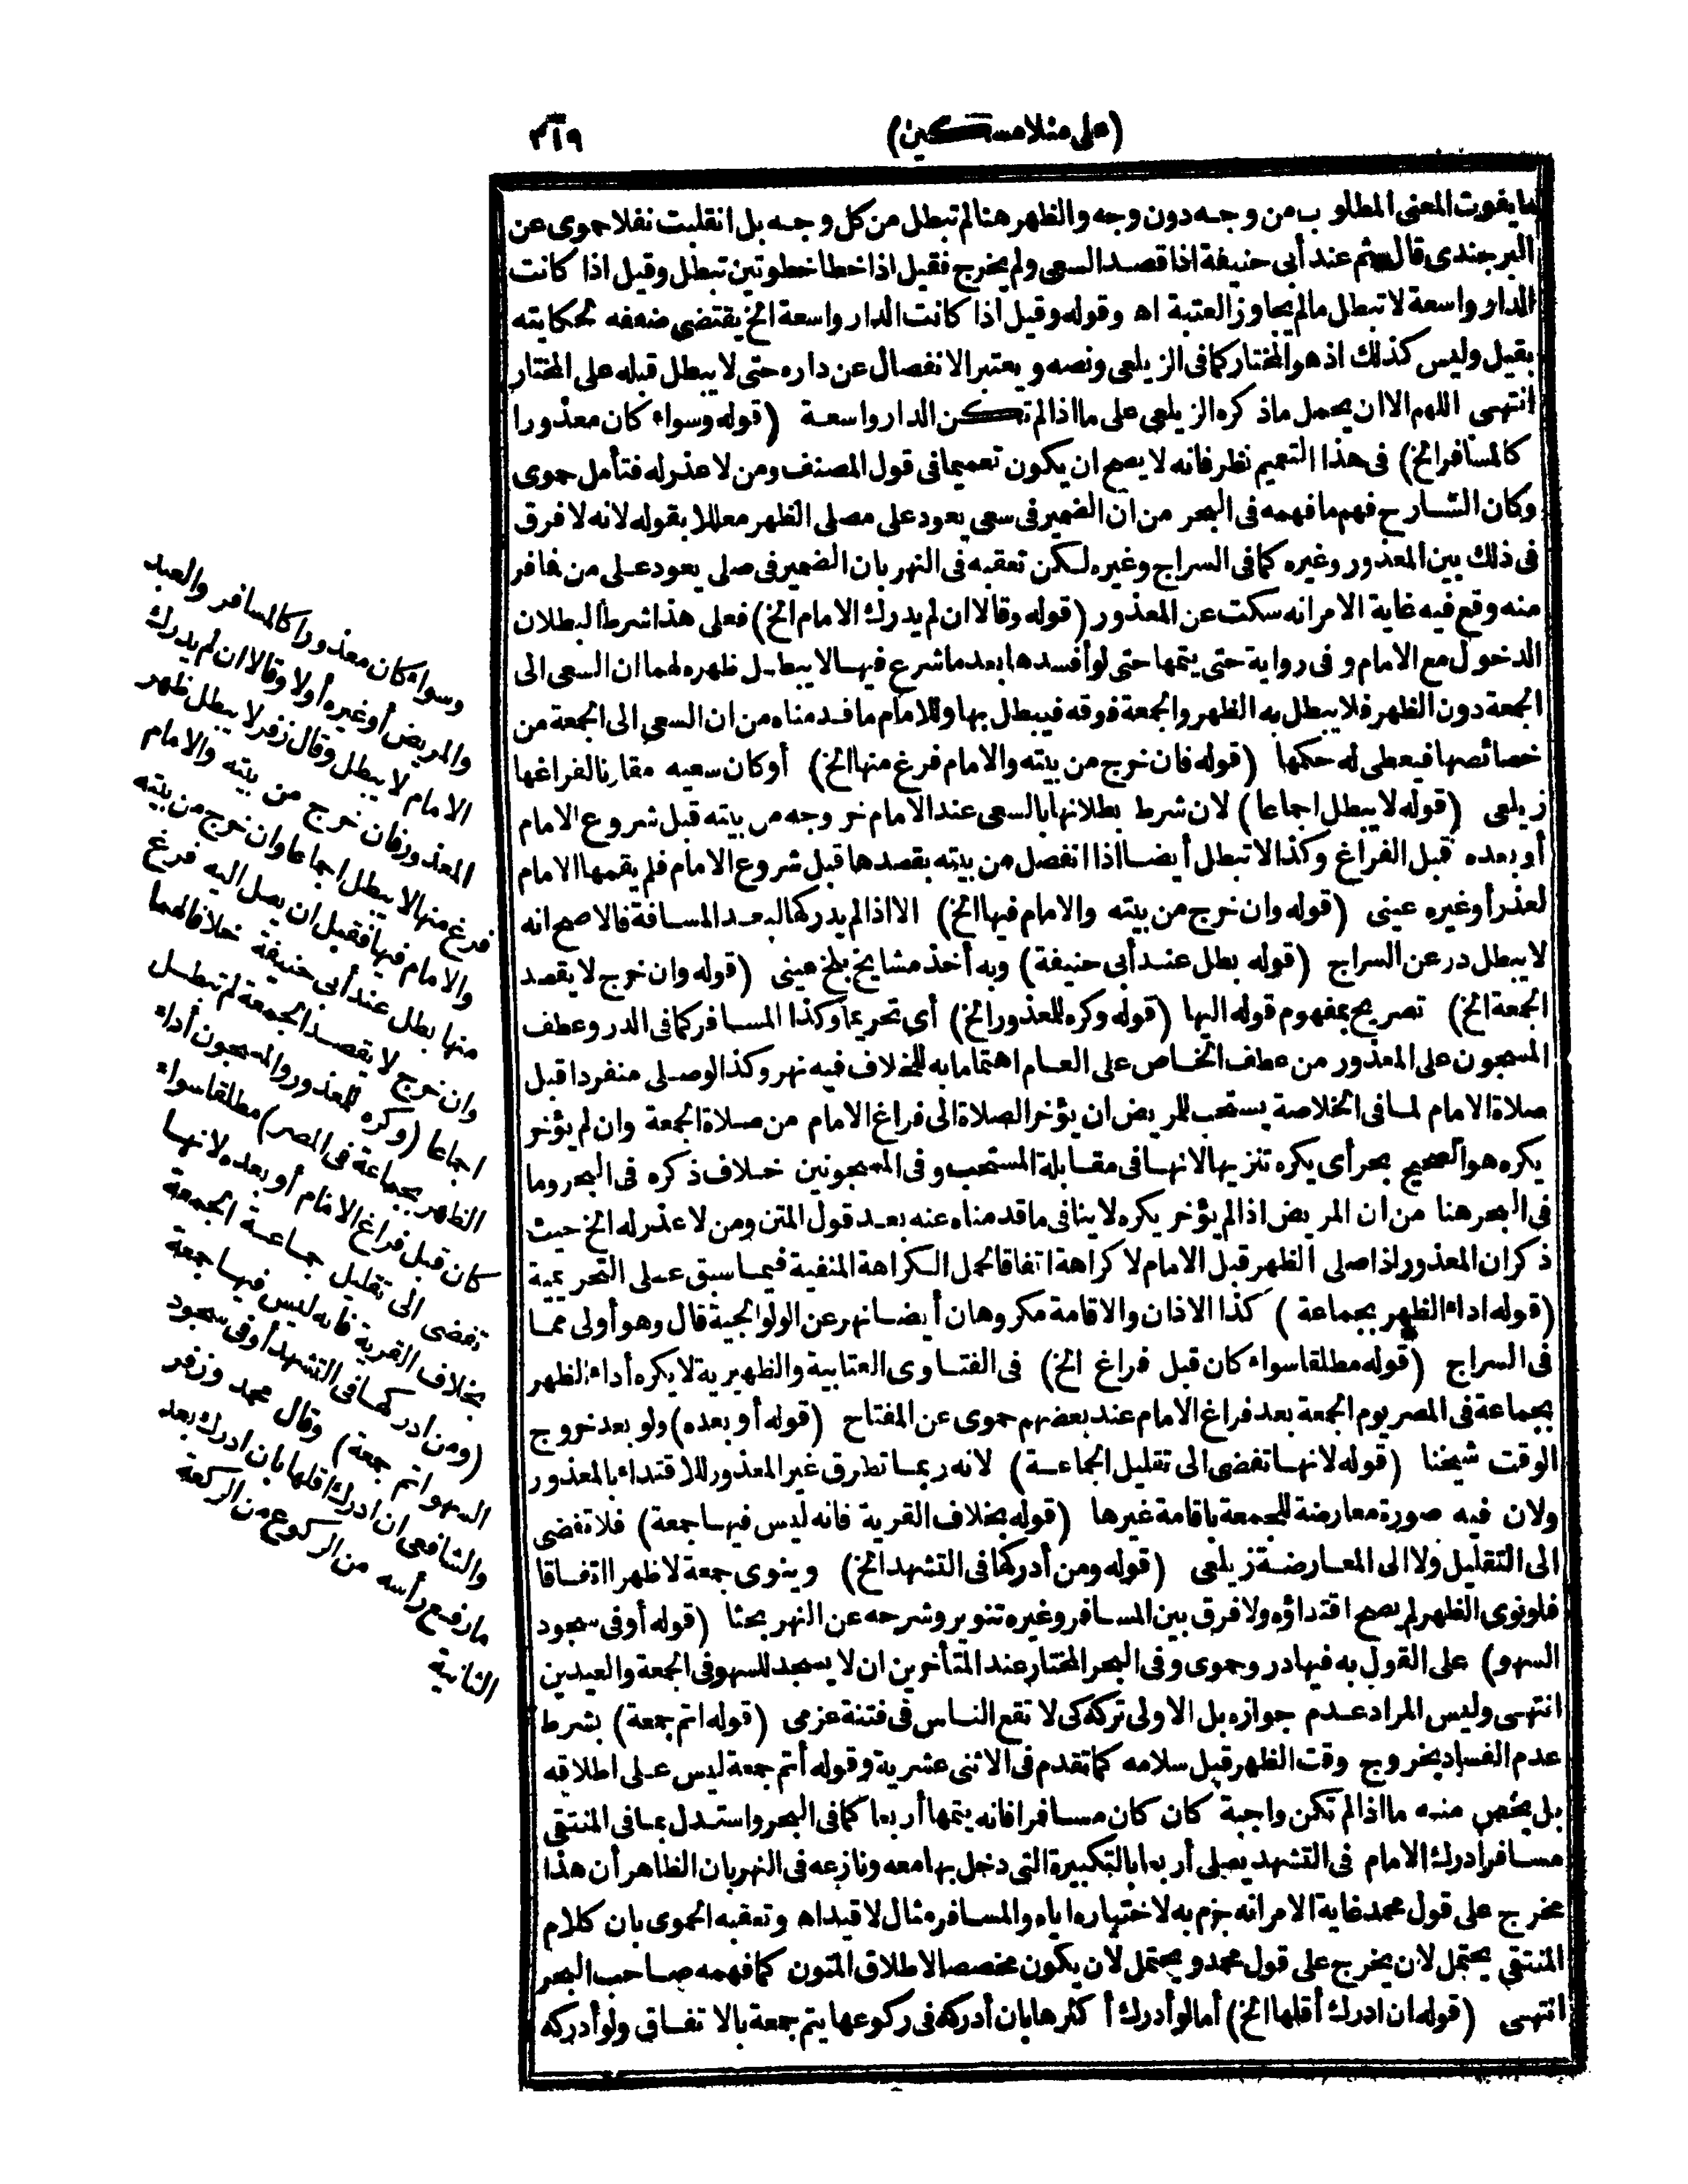 (على منلا مسكين)
٣١٩
ما يفوت المعنى المطلوب من وجه دون وجه والظهر هنا لم تبطل من كل وجه بل انقلبت نفلا حموى عن
البرجندى قال ثم عند أبى حنيفة اذا قصد السعى ولم يخرج فقيل اذا خطا خطوتين تبطل وقيل اذا كانت
الدار واسعة لا تبطل ما لم يجاوز العتبة اه وقوله وقيل اذا كانت الدار واسعة الخ يقتضى ضعفه لحكايته
بقيل وليس كذلك اذ هو المختار كما فى الزيلعى ونصه ويعتبر الانفصال عن داره حتى لا يبطل قبله على المختار
انتهى اللهم الا ان يحمل ما ذكره الزيلعى على ما اذا لم تكن الدار واسعة (قوله وسواء كان معذورا
كالمسافر الخ) فى هذا التعميم نظر فانه لا يصح ان يكون تعميما فى قول المصنف ومن لا عذر له فتأمل حموى
وكان الشارح فهم ما فهمه فى البحر من ان الضمير فى سعى يعود على مصلى الظهر معللا بقوله لانه لا فرق
فى ذلك بين المعذور وغيره كما فى السراج وغيره لكن تعقبه فى النهر بان الضمير فى صلى يعود على من فافر
منه وقع فيه غاية الامر انه سكت عن المعذور (قوله وقالا ان لم يدرك الامام الخ) فعلى هذا شرط البطلان
الدخول مع الامام وفى رواية حتى يتمها حتى لو أفسدها بعد ما شرع فيها لا يبطل ظهره لهما ان السعى الى
الجمعة دون الظهر فلا يبطل به الظهر والجمعة فوقه فيبطل بها وللامام ما قدمناه من ان السعى الى الجمعة من
خصائصها فيعطى له حكمها (قوله فان خرج من بيته والامام فرغ منها الخ) أو كان سعيه مقارنا لفراغها
زيلعى (قوله لا يبطل اجماعا) لان شرط بطلانها بالسعى عند الامام خروجه من بيته قبل شروع الامام
أو بعده قبل الفراغ وكذا لا تبطل أيضا اذا انفصل من بيته بقصدها قبل شروع الامام فلم يقمها الامام
لعذر أو غيره عينى (قوله وان خرج من بيته والامام فيها الخ) الا اذا لم يدركها لبعد المسافة فالاصح انه
لا يبطل در عن السراج (قوله بطل عند أبى حنيفة) وبه أخذ مشايخ بلخ عينى (قوله وان خرج لا يقصد
الجمعة الخ) تصريح بمفهوم قوله اليها (قوله وكره للمعذور الخ) أى تحريما وكذا المسافر كما فى الدر وعطف
المسجون على المعذور من عطف الخاص على العام اهتماما به للخلاف فيه نهر وكذا لو صلى منفردا قبل
صلاة الامام لما فى الخلاصة يستحب للمريض ان يؤخر الصلاة الى فراغ الامام من صلاة الجمعة وان لم يؤخر
يكره هو الصحيح بحر أى يكره تنزيها لانها فى مقابلة المستحب وفى المسجونين خلاف ذكره فى البحر وما
فى البحر هنا من ان المريض اذا لم يؤخر يكره لا ينافى ما قدمناه عنه بعد قول المتن ومن لا عذر له الخ حيث
ذكر ان المعذور اذا صلى الظهر قبل الامام لا كراهة اتفاقا لحمل الكراهة المنفية فيما سبق على التحريمية
(قوله اداء الظهر بجماعة) كذا الاذان والاقامة مكروهان أيضا نهر عن الولوالجية قال وهو أولى مما
فى السراج (قوله مطلقا سواء كان قبل فراغ الخ) فى الفتاوى العتابية والظهيرية لا يكره أداء الظهر
بجماعة فى المصر يوم الجمعة بعد فراغ الامام عند بعضهم حموى عن المفتاح (قوله أو بعده) ولو بعد خروج
الوقت شيخنا (قوله لانها تفضى الى تقليل الجماعة) لانه ربما تطرق غير المعذور للاقتداء بالمعذور
ولان فيه صورة معارضة للجمعة باقامة غيرها (قوله بخلاف القرية فانه ليس فيها جمعة) فلا تفضى
الى التقليل ولا الى المعارضة زيلعى (قوله ومن أدركها فى التشهد الخ) وينوى جمعة لا ظهرا اتفاقا
فلو نوى الظهر لم يصح اقتداؤه ولا فرق بين المسافر وغيره تنوير وشرحه عن النهر بحثا (قوله أو فى سجود
السهو) على القول به فيها در وحموى وفى البحر المختار عند المتأخرين ان لا يسجد للسهو فى الجمعة والعيدين
انتهى وليس المراد عدم جوازه بل الاولى تركه كى لا تقع الناس فى فتنة عزمى (قوله اتم جمعة) بشرط
عدم الفساد بخروج وقت الظهر قبل سلامه كما تقدم فى الاثنى عشرية وقوله أتم جمعة ليس على اطلاقه
بل يخص منه ما اذا لم تكن واجبة كان كان مسافرا فانه يتمها أربعا كما فى البحر واستدل بما فى المنتقى
مسافر أدرك الامام فى التشهد يصلى أربعا بالتكبيرة التى دخل بها معه ونازعه فى النهر بان الظاهر أن هذا
مخرج على قول محمد غاية الامر انه جزم به لاختياره اياه والمسافر مثال لا قيد اه وتعقبه الحموى بان كلام
المنتقى يحتمل لان يخرج على قول محمد ويحتمل لان يكون مخصصا لاطلاق المتون كما فهمه صاحب البحر
انتهى (قوله ان ادرك أقلها الخ) أما لو أدرك أكثرها بان أدركه فى ركوعها يتم جمعة بالاتفاق ولو أدركه
وسواء كان معذورا كالمسافر والعبد
والمريض أو غيره أولا وقالا ان لم يدرك
الامام لا يبطل وقال زفر لا يبطل ظهر
المعذور فان خرج من بيته والامام
فرغ منها لا يبطل اجماعا وان خرج من بيته
والامام فيها فقبل ان يصل اليه فرغ
منها بطل عند أبى حنيفة خلافا لهما
وان خرج لا يقصد الجمعة لم تبطل
اجماعا (وكره للمعذور والمسجون أداء
الظهر بجماعة فى المصر) مطلقا سواء
كان قبل فراغ الامام أو بعده لانها
تفضى الى تقليل جماعة الجمعة
بخلاف القرية فانه ليس فيها جمعة
(ومن ادركها فى التشهد أو فى سجود
السهو اتم جمعة) وقال محمد وزفر
والشافعى ان ادرك اقلها بان ادرك بعد
ما رفع رأسه من الركوع من الركعة
الثانية